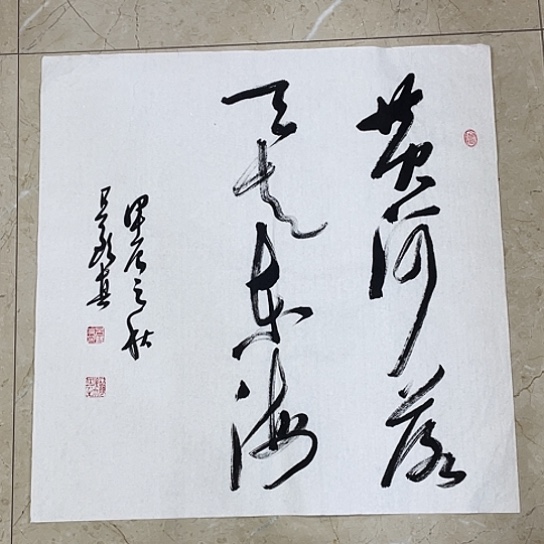 黄河落
天走东海
甲辰之秋